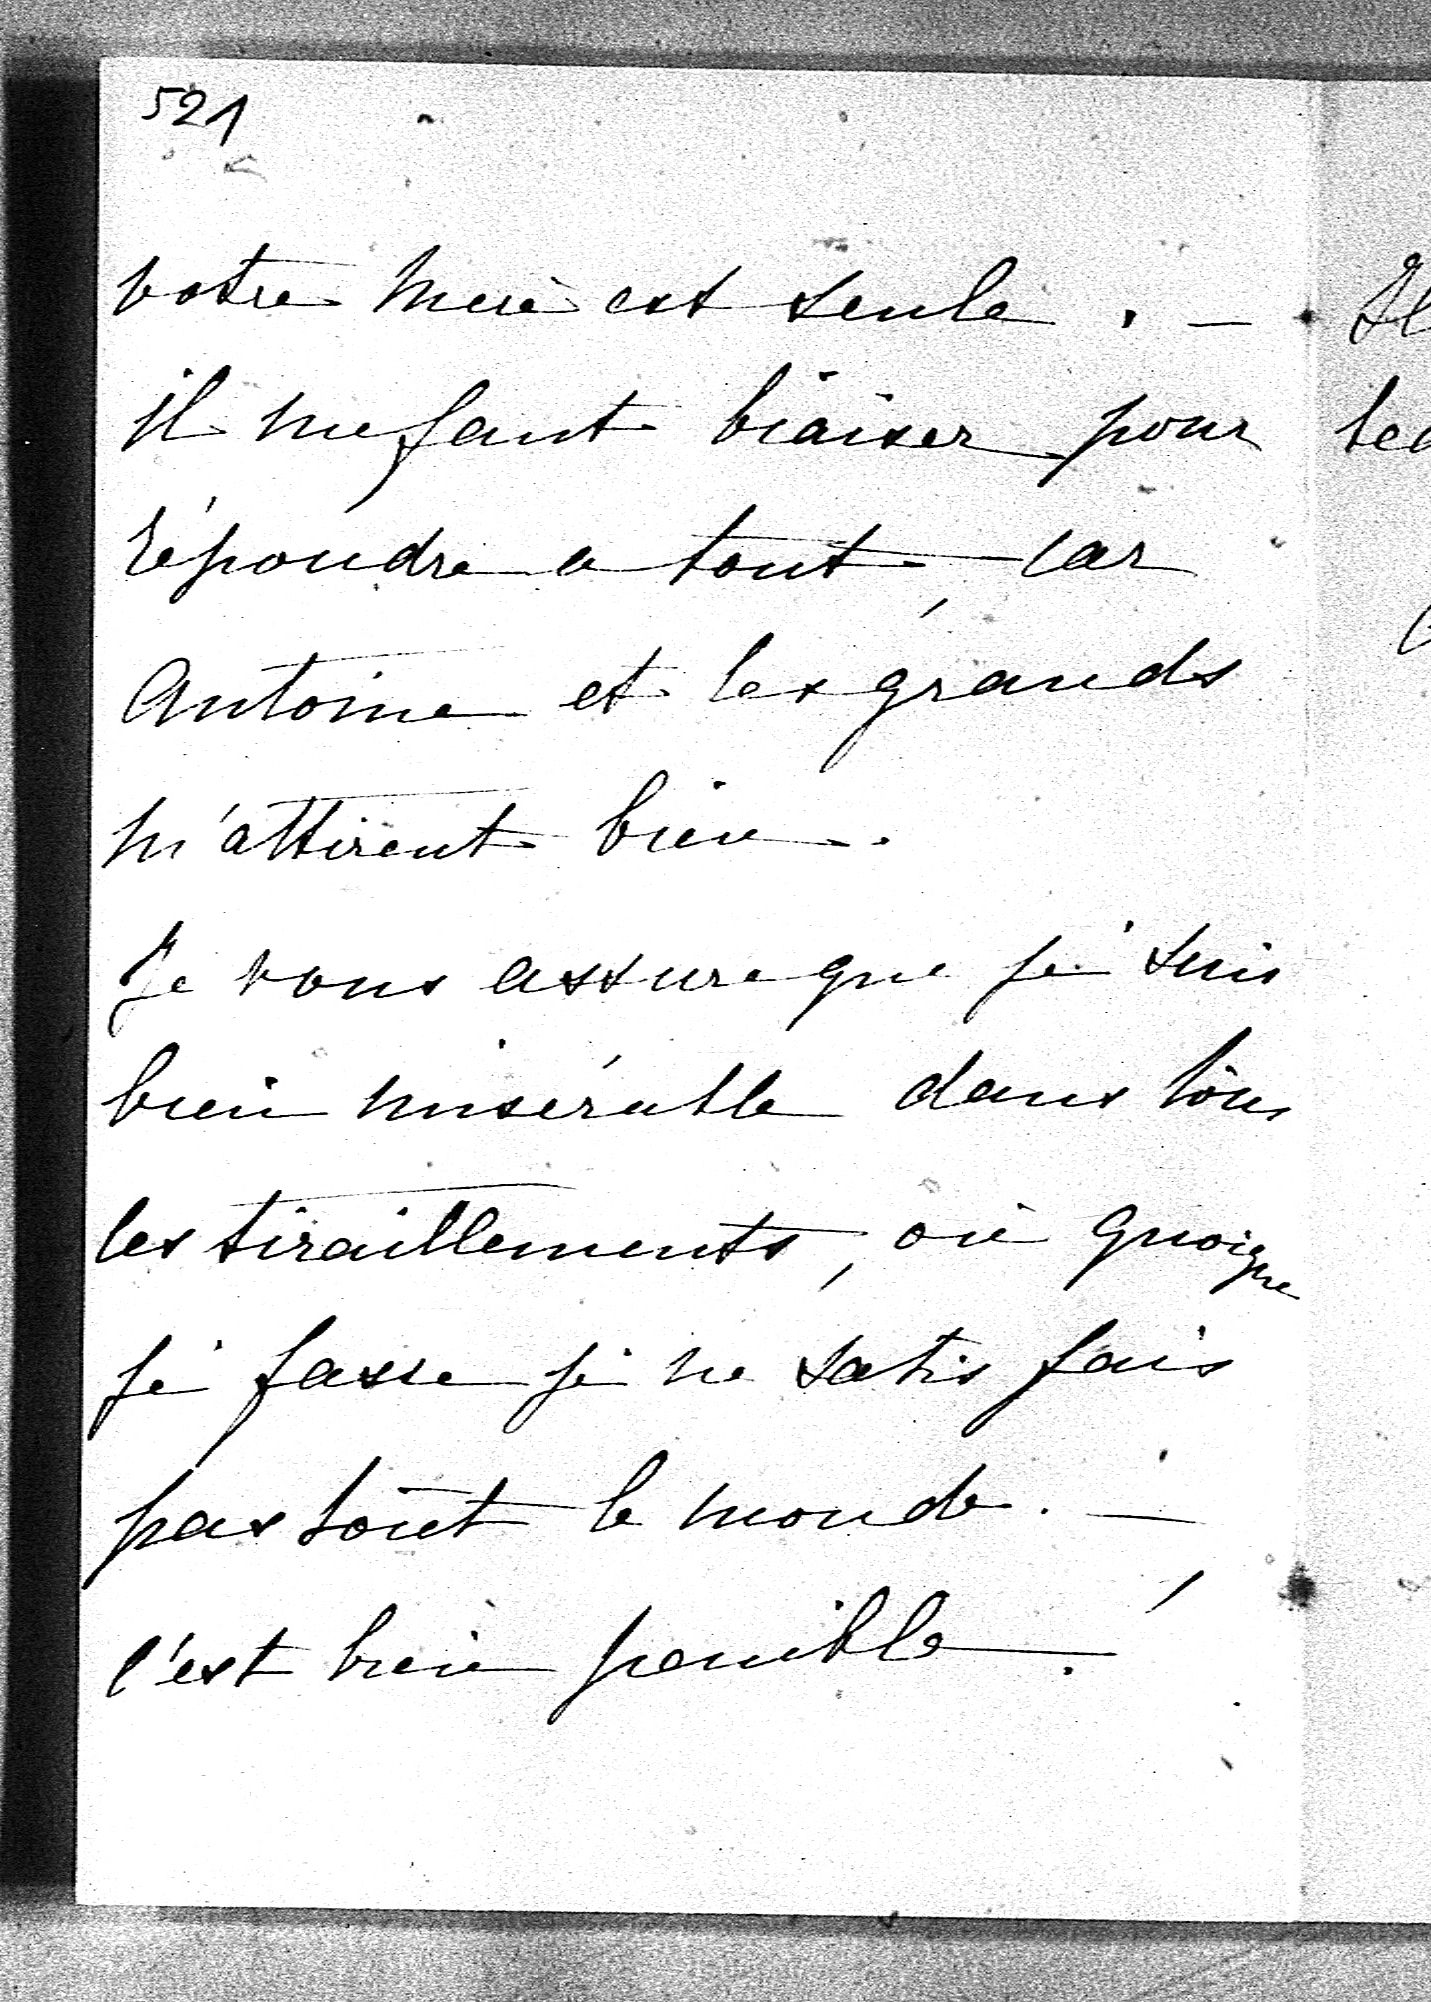 521
votre mère est seule. —
il me faut biaiser pour
répondre a tout, car
Antoine et les grands
m'attirent bien.
Je vous assure que je suis
bien misérable dans tous
les tiraillements, où quoique
je fasse je ne satis fais
pas tout le monde. —
c'est bien penible.
Il